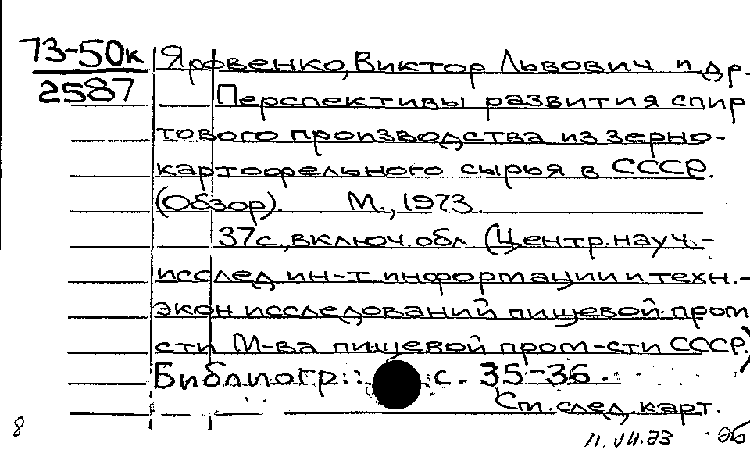 73-50к Яровенко, Виктор Львович и др.
2587 Перспективы развития спир
тового производства из зерно-
картофельного сырья в СССР.
(Обзор). М., 1973.
37с., включ. обл. (Центр. науч.-
исслед. ин-т информации и техн.-
экон исследований пищевой пром
сти М-ва пищевой пром-сти СССР)
Библиогр.: с. 35-36.
См. след. карт.
8